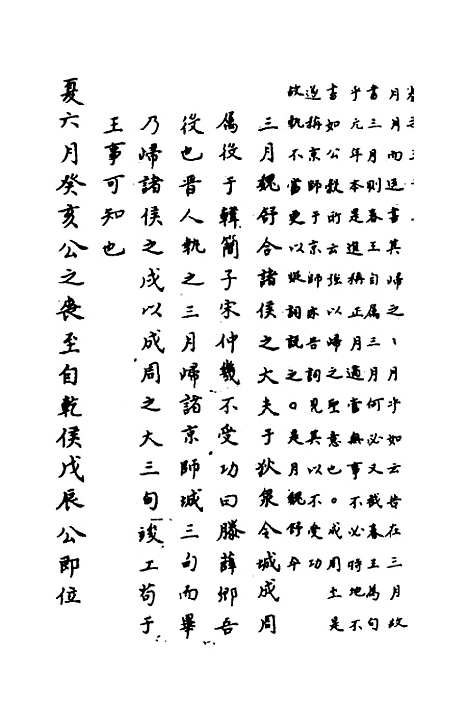 月月而追書其歸之丶月乎如云昔在三月故
書三月則春王自屬三月何必又截春王為句
乎元年本是追稱正月適當無事不必時地不
書如公穀所云強以歸之聖意也。成周土是
遂稱京師于京師亦告詞見其以不受功
故執不當更以疑詞說之〇是月魏舒卒
三月魏舒合諸侯之大夫于狄泉令城成周
屬役于韓簡子宋仲幾不受功曰滕薛郳吾
役也晉人執之三月歸諸京師城三旬而畢
乃歸諸侯之戍以成周之大三旬竣工苟于
王事可知也
夏六月癸亥公之喪至自乾侯戊辰公即位